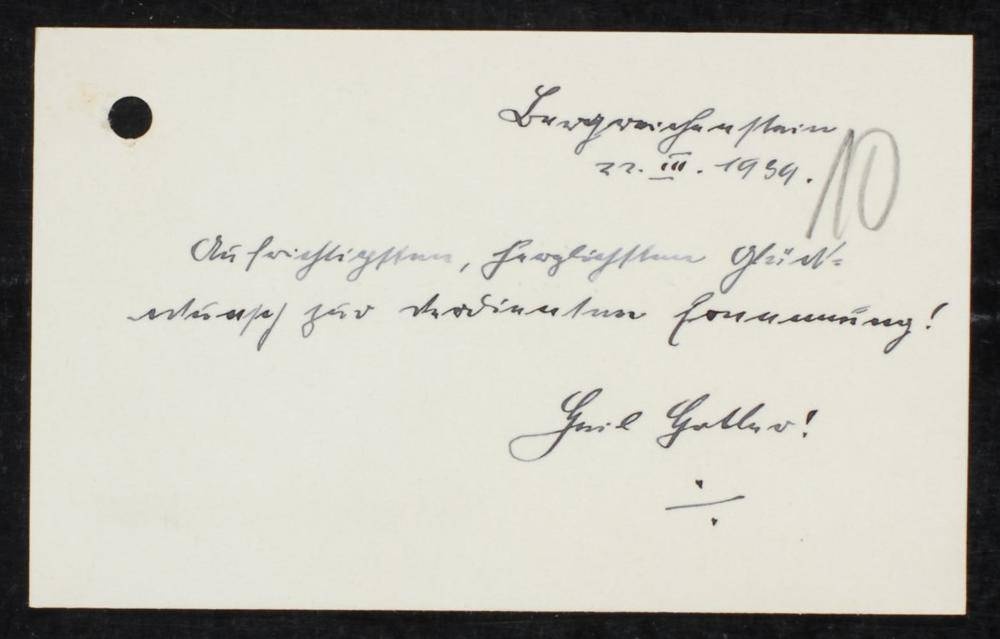 Bergreichenstein
22. III. 1939.
10
Aufrichtigsten, herzlichsten Glück=
wunsch zur verdienten Ernennung!
Heil Hitler!